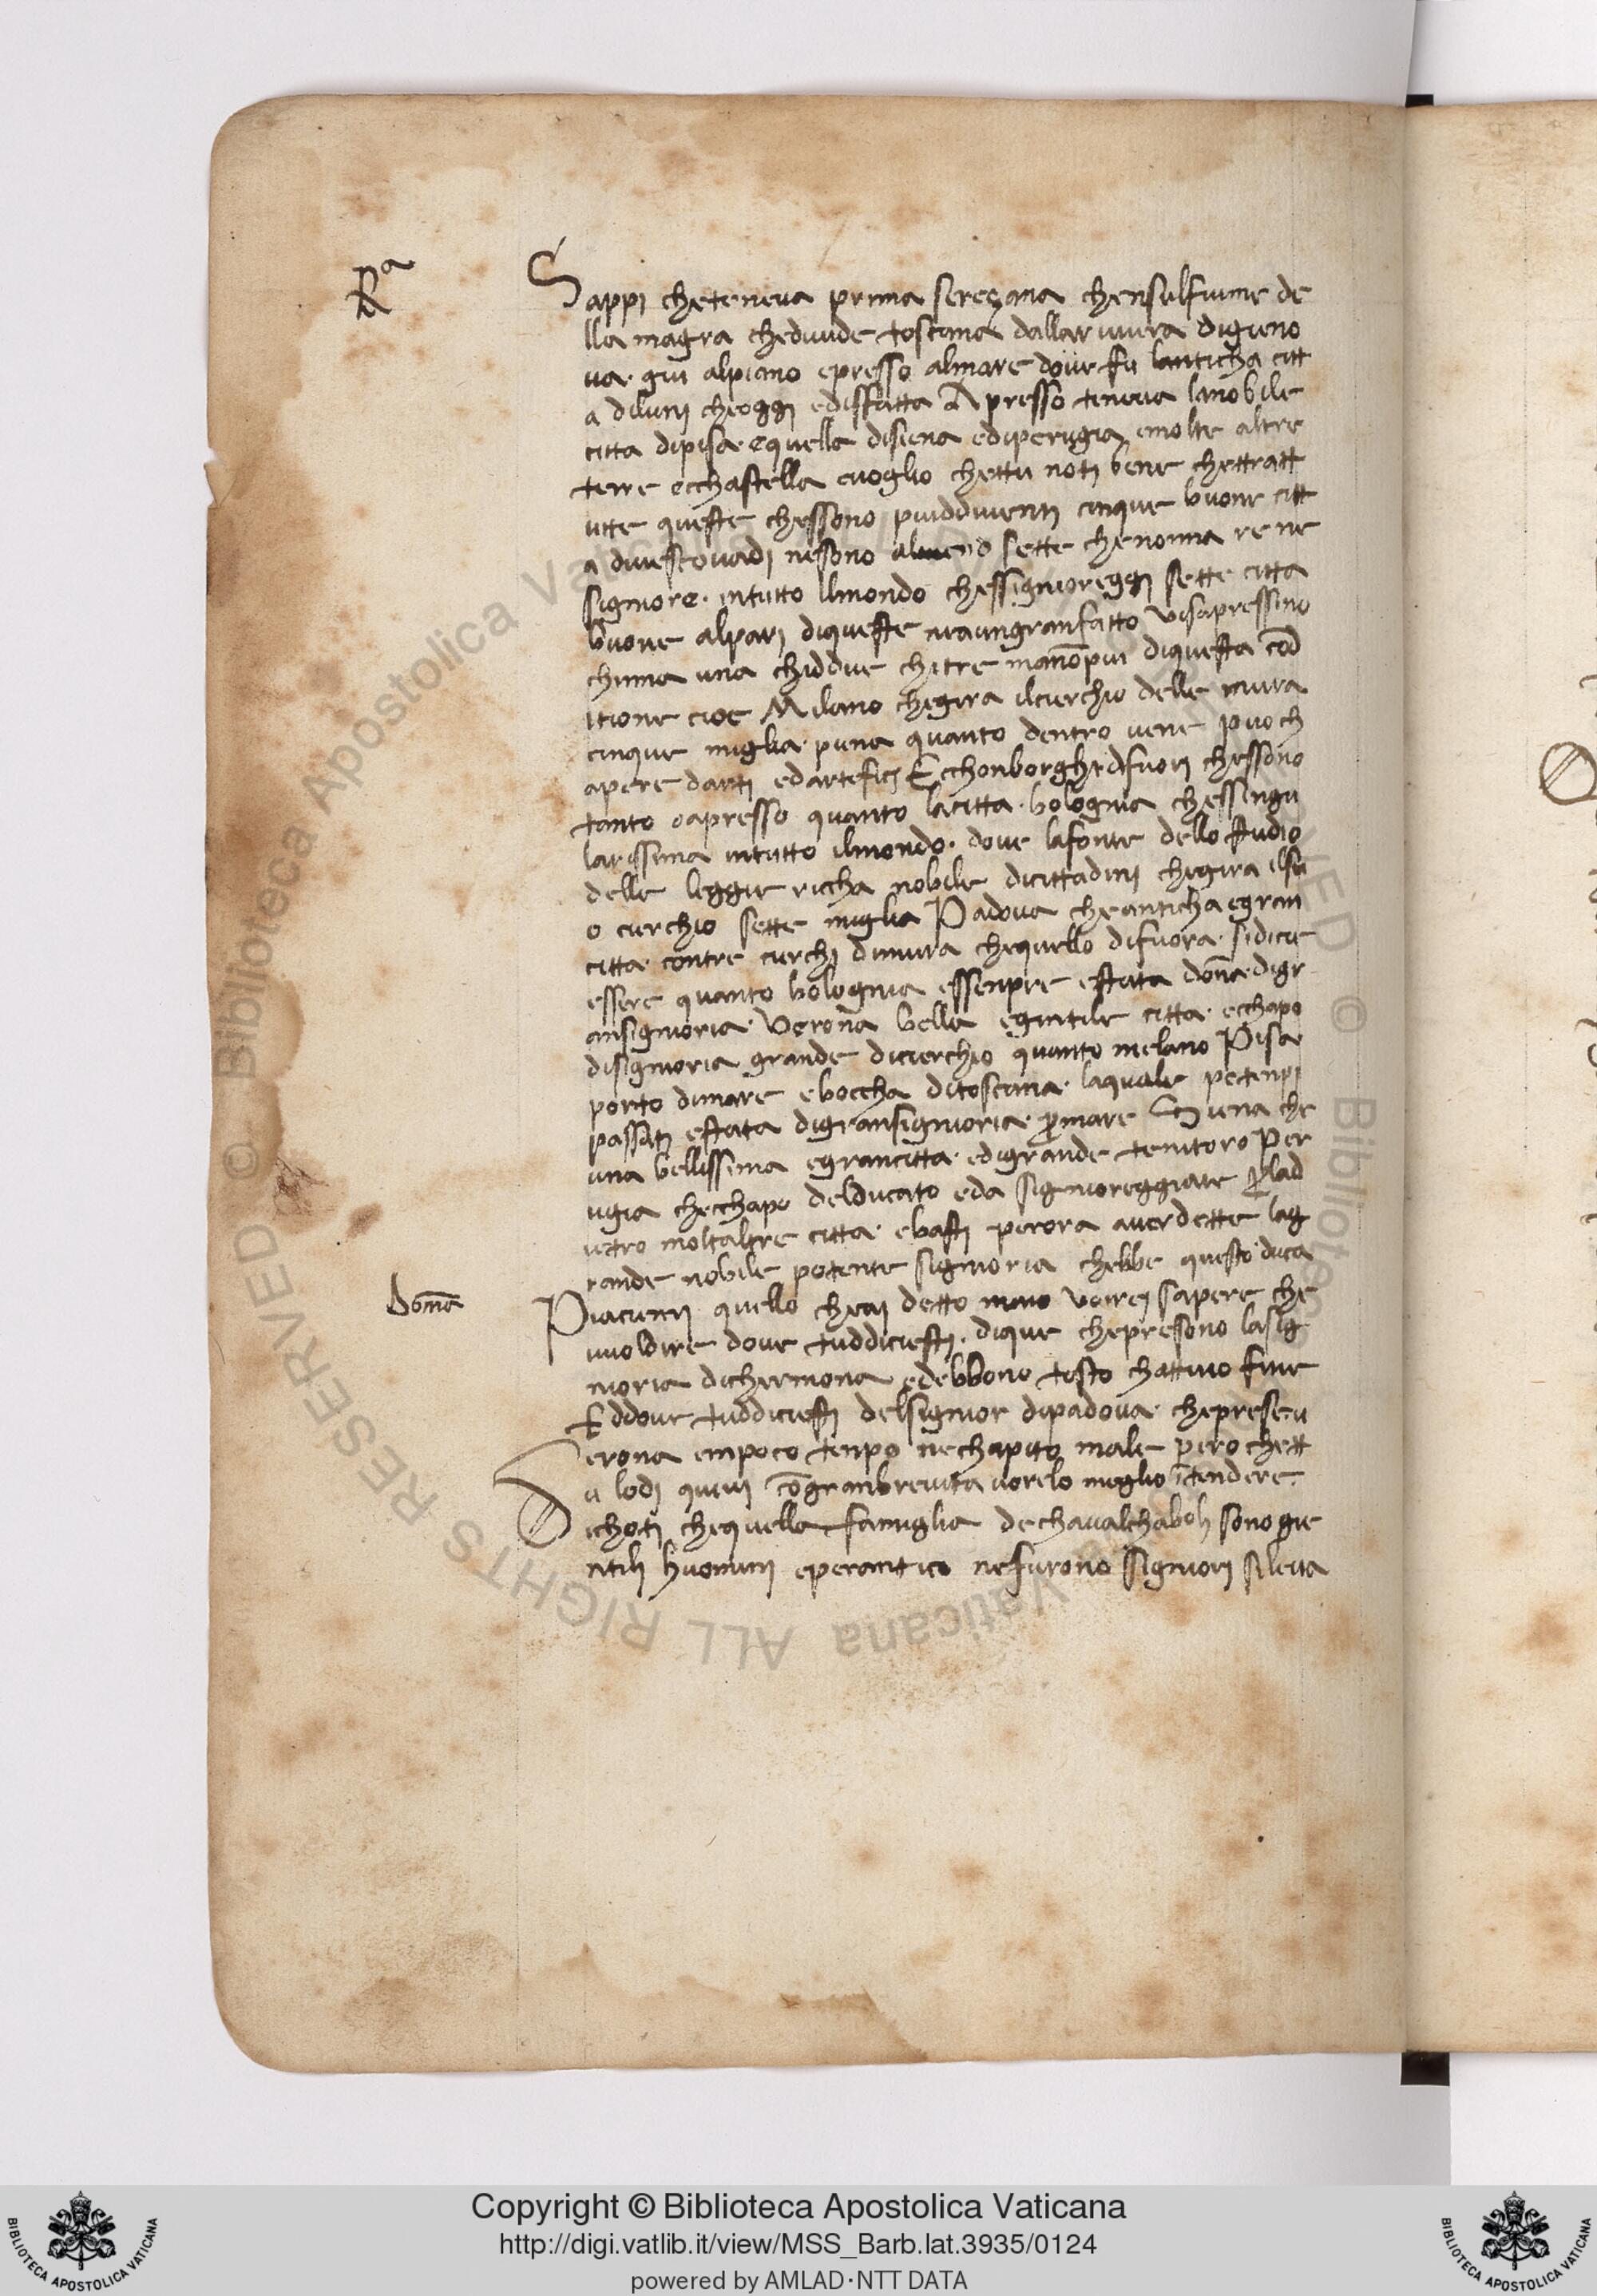 Rª
Sappi cheteneua prima sereçana chensulfiume de
lla magra chediuide toscana dallariuiera digieno
ua. qui alpiano epresso almare doue fu lanticha citt
a diluni cheoggi edisfatta Apresso teneua lanobile
citta dipisa. equella disiena ediperugia emolte altre
terre ecchastella euoglio chettu noti bene chettratt
utte queste chessono piuddiuenti cinque buone citt
a diuescouadi nessono almeno sette chenonna re ne
signiore. intutto ilmondo chessignioreggi sette citta
buone alpari diqueste maungranfatto visapressino
chinna una chiddue chitre manōpiu diquesta cōd
itione cioe Milano chegira ilcierchio delle mura
cinque miglia. piena quanto dentro uene puoch
apere darti edartefici Ecchonborghidifuori chessono
tanto oapresso quanto lacitta. bolognia chessingu
larissima intutto ilmondo. doue lafonte dello studio
delle leggie riccha nobile dicittadini chegira ilsu
o cierchio sette miglia Padoua cheanticha egran
citta contre cierchi dimura chequello difuora. sidicie
essere quanto bolognia essenpre estata dōna. digr
ansignioria. Verona bella egientile citta. ecchapo
disignioria grande dicierchio quanto melano Pisa
porto dimare eboccha ditoscana. laquale petenpi
passati estata digransignioria. p̄mare Siena che
una bellissima egrancitta. edigrande tenitoro Per
ugia checchapo delducato eda signioreggiare p̄lad
uetro moltaltre citta. ebasti perora auerdette lag
rande nobile potente signioria chebbe questo duca
Domā
Piacemi quello cheai detto mao vorrei sapere che
uuoldire doue tuddiciesti. dique chepressono lasig
nioria dichermona edebbono tosto chattiuo fine
Eddoue tuddiciesti delsignior dipadoua. cheprese. u
erona empoco tenpo nechapito male pero chett
u lodi quiui cōgranbreuita uorelo meglio ītendere.
Dichoti chequella famiglia dechaualchaboli sono gie
ntili huomini eperantico nefurono signiori sileua
Copyright © Biblioteca Apostolica Vaticana
http://digi.vatlib.it/view/MSS_Barb.lat.3935/0124
powered by AMLAD·NTT DATA